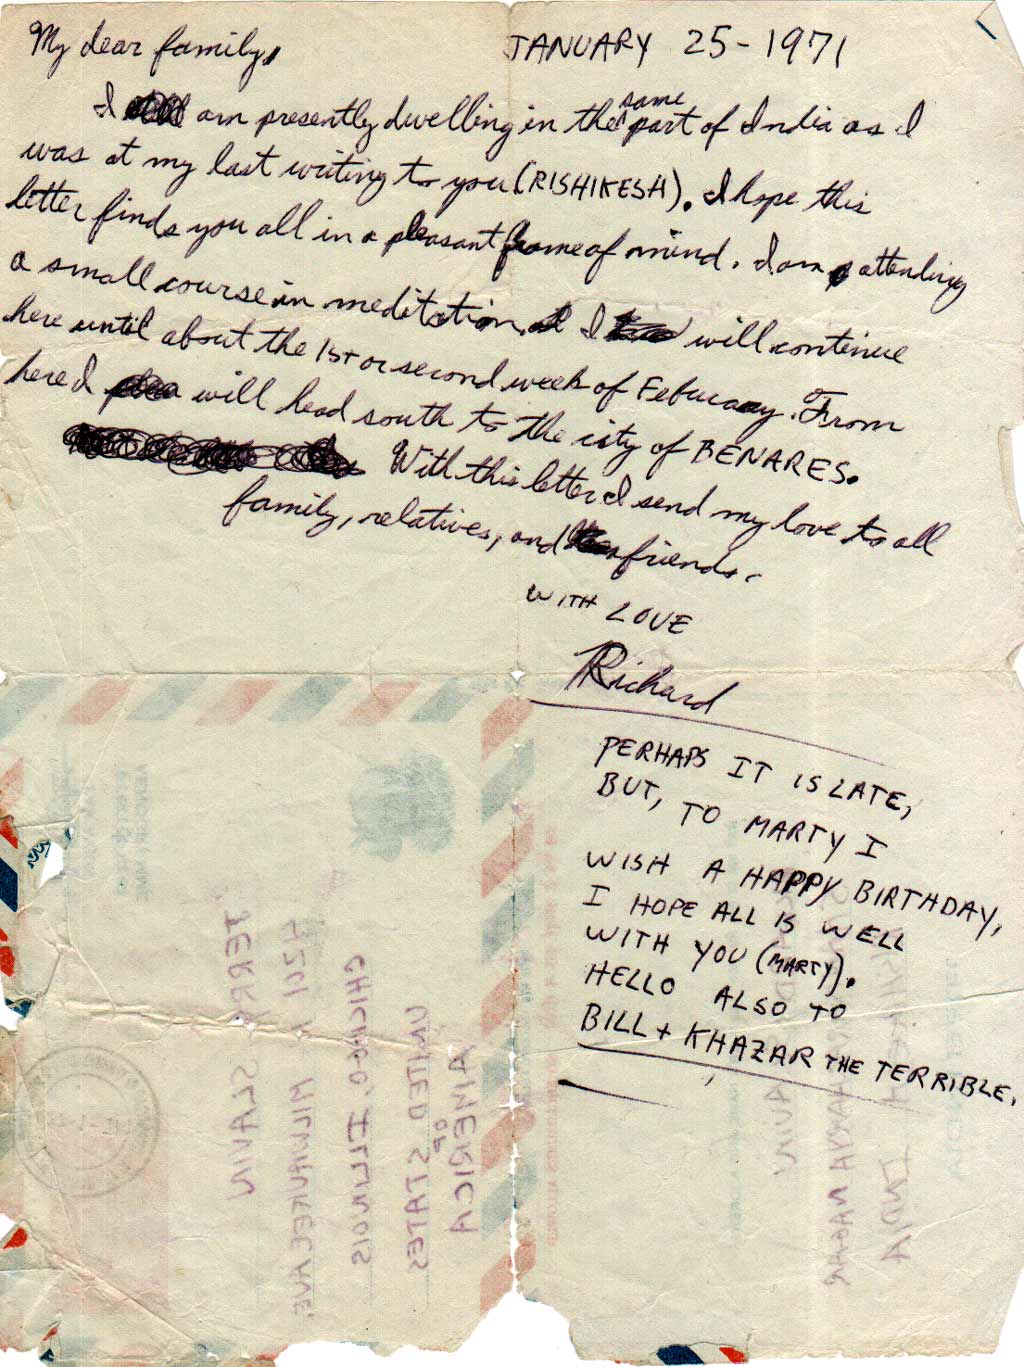 My dear family,
JANUARY 25-1971
I am presently dwelling in the same part of India as I
was at my last writing to you (RISHIKESH). I hope this
letter finds you all in a pleasant frame of mind. I am attending
a small course in meditation. I will continue
here until about the 1st or second week of Febuary. From
here I will head south to the city of BENARES.
With this letter I send my love to all
family, relatives, and friends.
WITH LOVE
Richard
PERHAPS IT IS LATE,
BUT, TO MARTY I
WISH A HAPPY BIRTHDAY,
I HOPE ALL IS WELL
WITH YOU (MARTY).
HELLO ALSO TO
BILL + KHAZAR THE TERRIBLE.
JERRY SLAVIN
CHICAGO, ILLINOIS
UNITED STATES
OF
AMERICA
INDIA